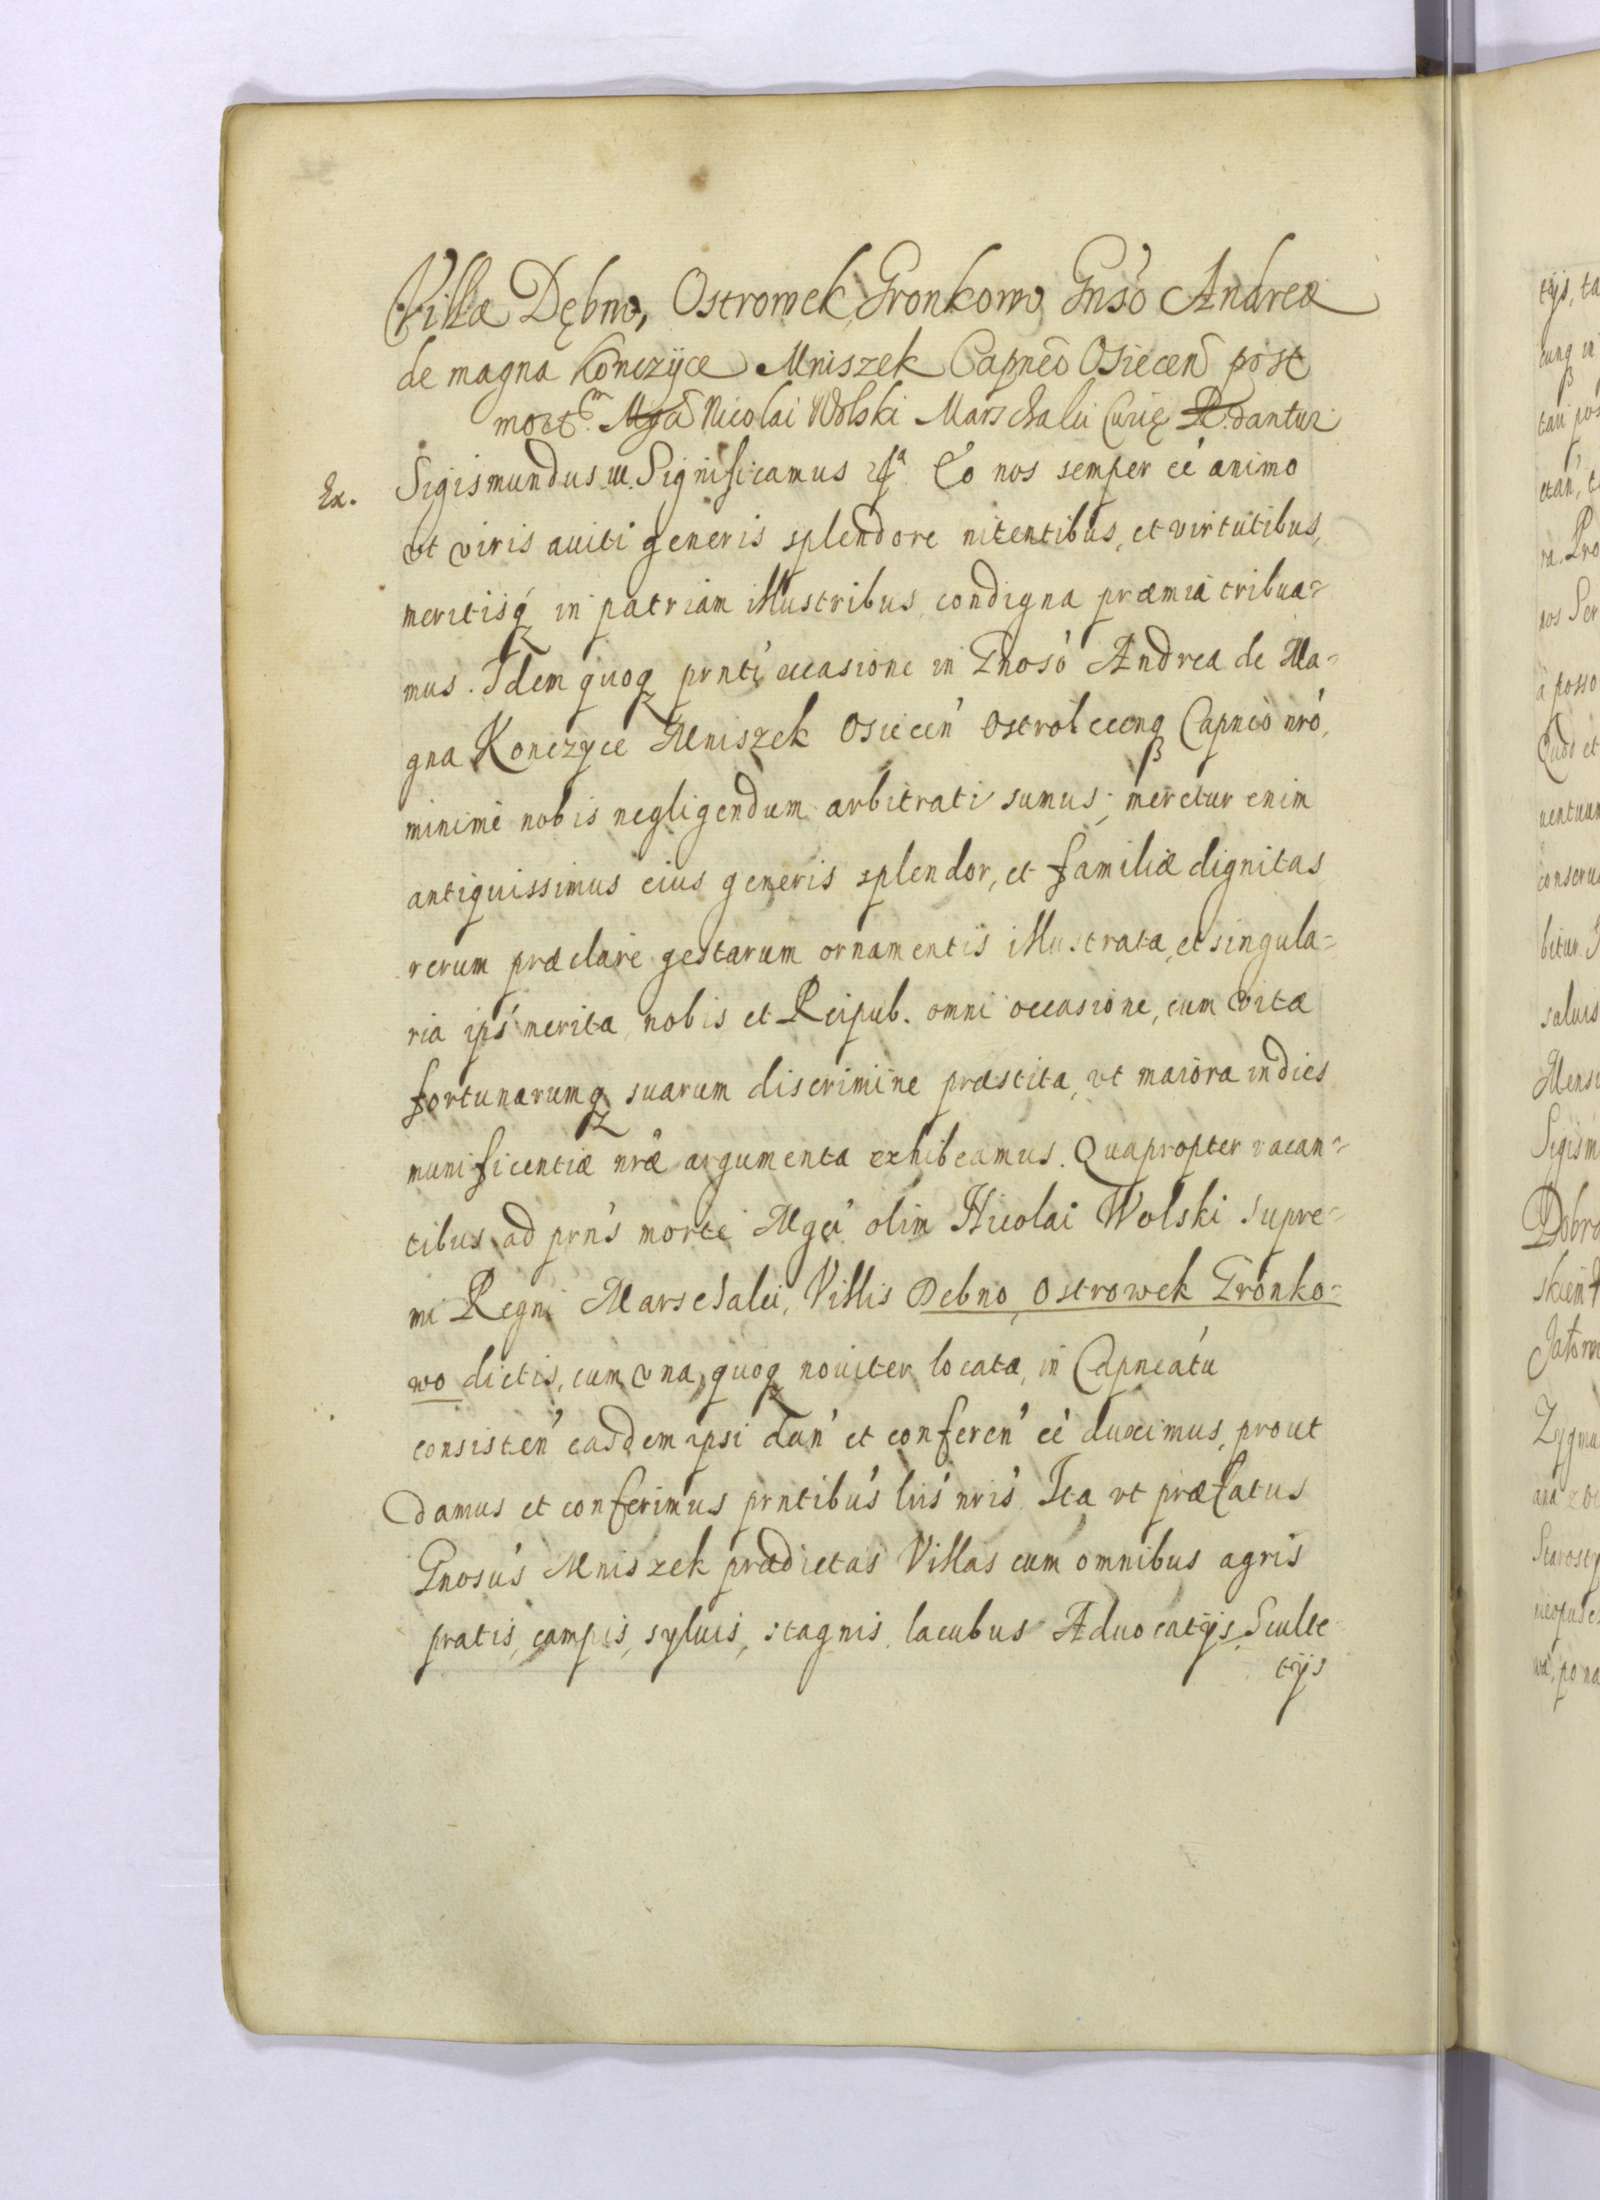 Villæ Dębno, Ostrowek, Gronkowo, Gnso Andreæ
de magna Kończÿce Mniszek Capneo Osiecen post
mortem Mgci Nicolai Wolski Marschalci Curię R. dantur
Ex. Sigismundus III. Significamus Eo nos semper eé animo
vt viris auiti generis splendore nitentibus, et virtutibus,
meritisq in patriam illustribus condigna præmia tribua=
mus. Idem quoq prnti occasione in Gnoso Andrea de Ma=
gna Konczyce Mniszek Osiecen Ostrolecenq Capneo nro,
minime nobis negligendum arbitrati sumus; meretur enim
antiquissimus eius generis splendor, et familiæ dignitas
rerum præclare gestarum ornamentis illustrata, et singula=
ria ips merita, nobis et Reipub. omni occasione, cum vitæ
fortunarumq suarum discrimine præstita, vt maiora indies
munificentiæ nræ argumenta exhibeamus. Quapropter vacan=
tibus ad prns morte Mgci olim Nicolai Wolski Supre=
mi Regni Marschalci, Villis Debno, Ostrowek Gronko=
wo dictis, cum vna quoq nouiter locata, in Capneatu
consisten easdem ipsi dan et conferen eé duximus, prout
damus et conferimus prntibus lris nris. Ita vt præfatus
Gnosus Mniszek prædictas Villas cum omnibus agris
pratis, campis, syluis, stagnis, lacubus Aduocatÿs, Sculte
tÿs